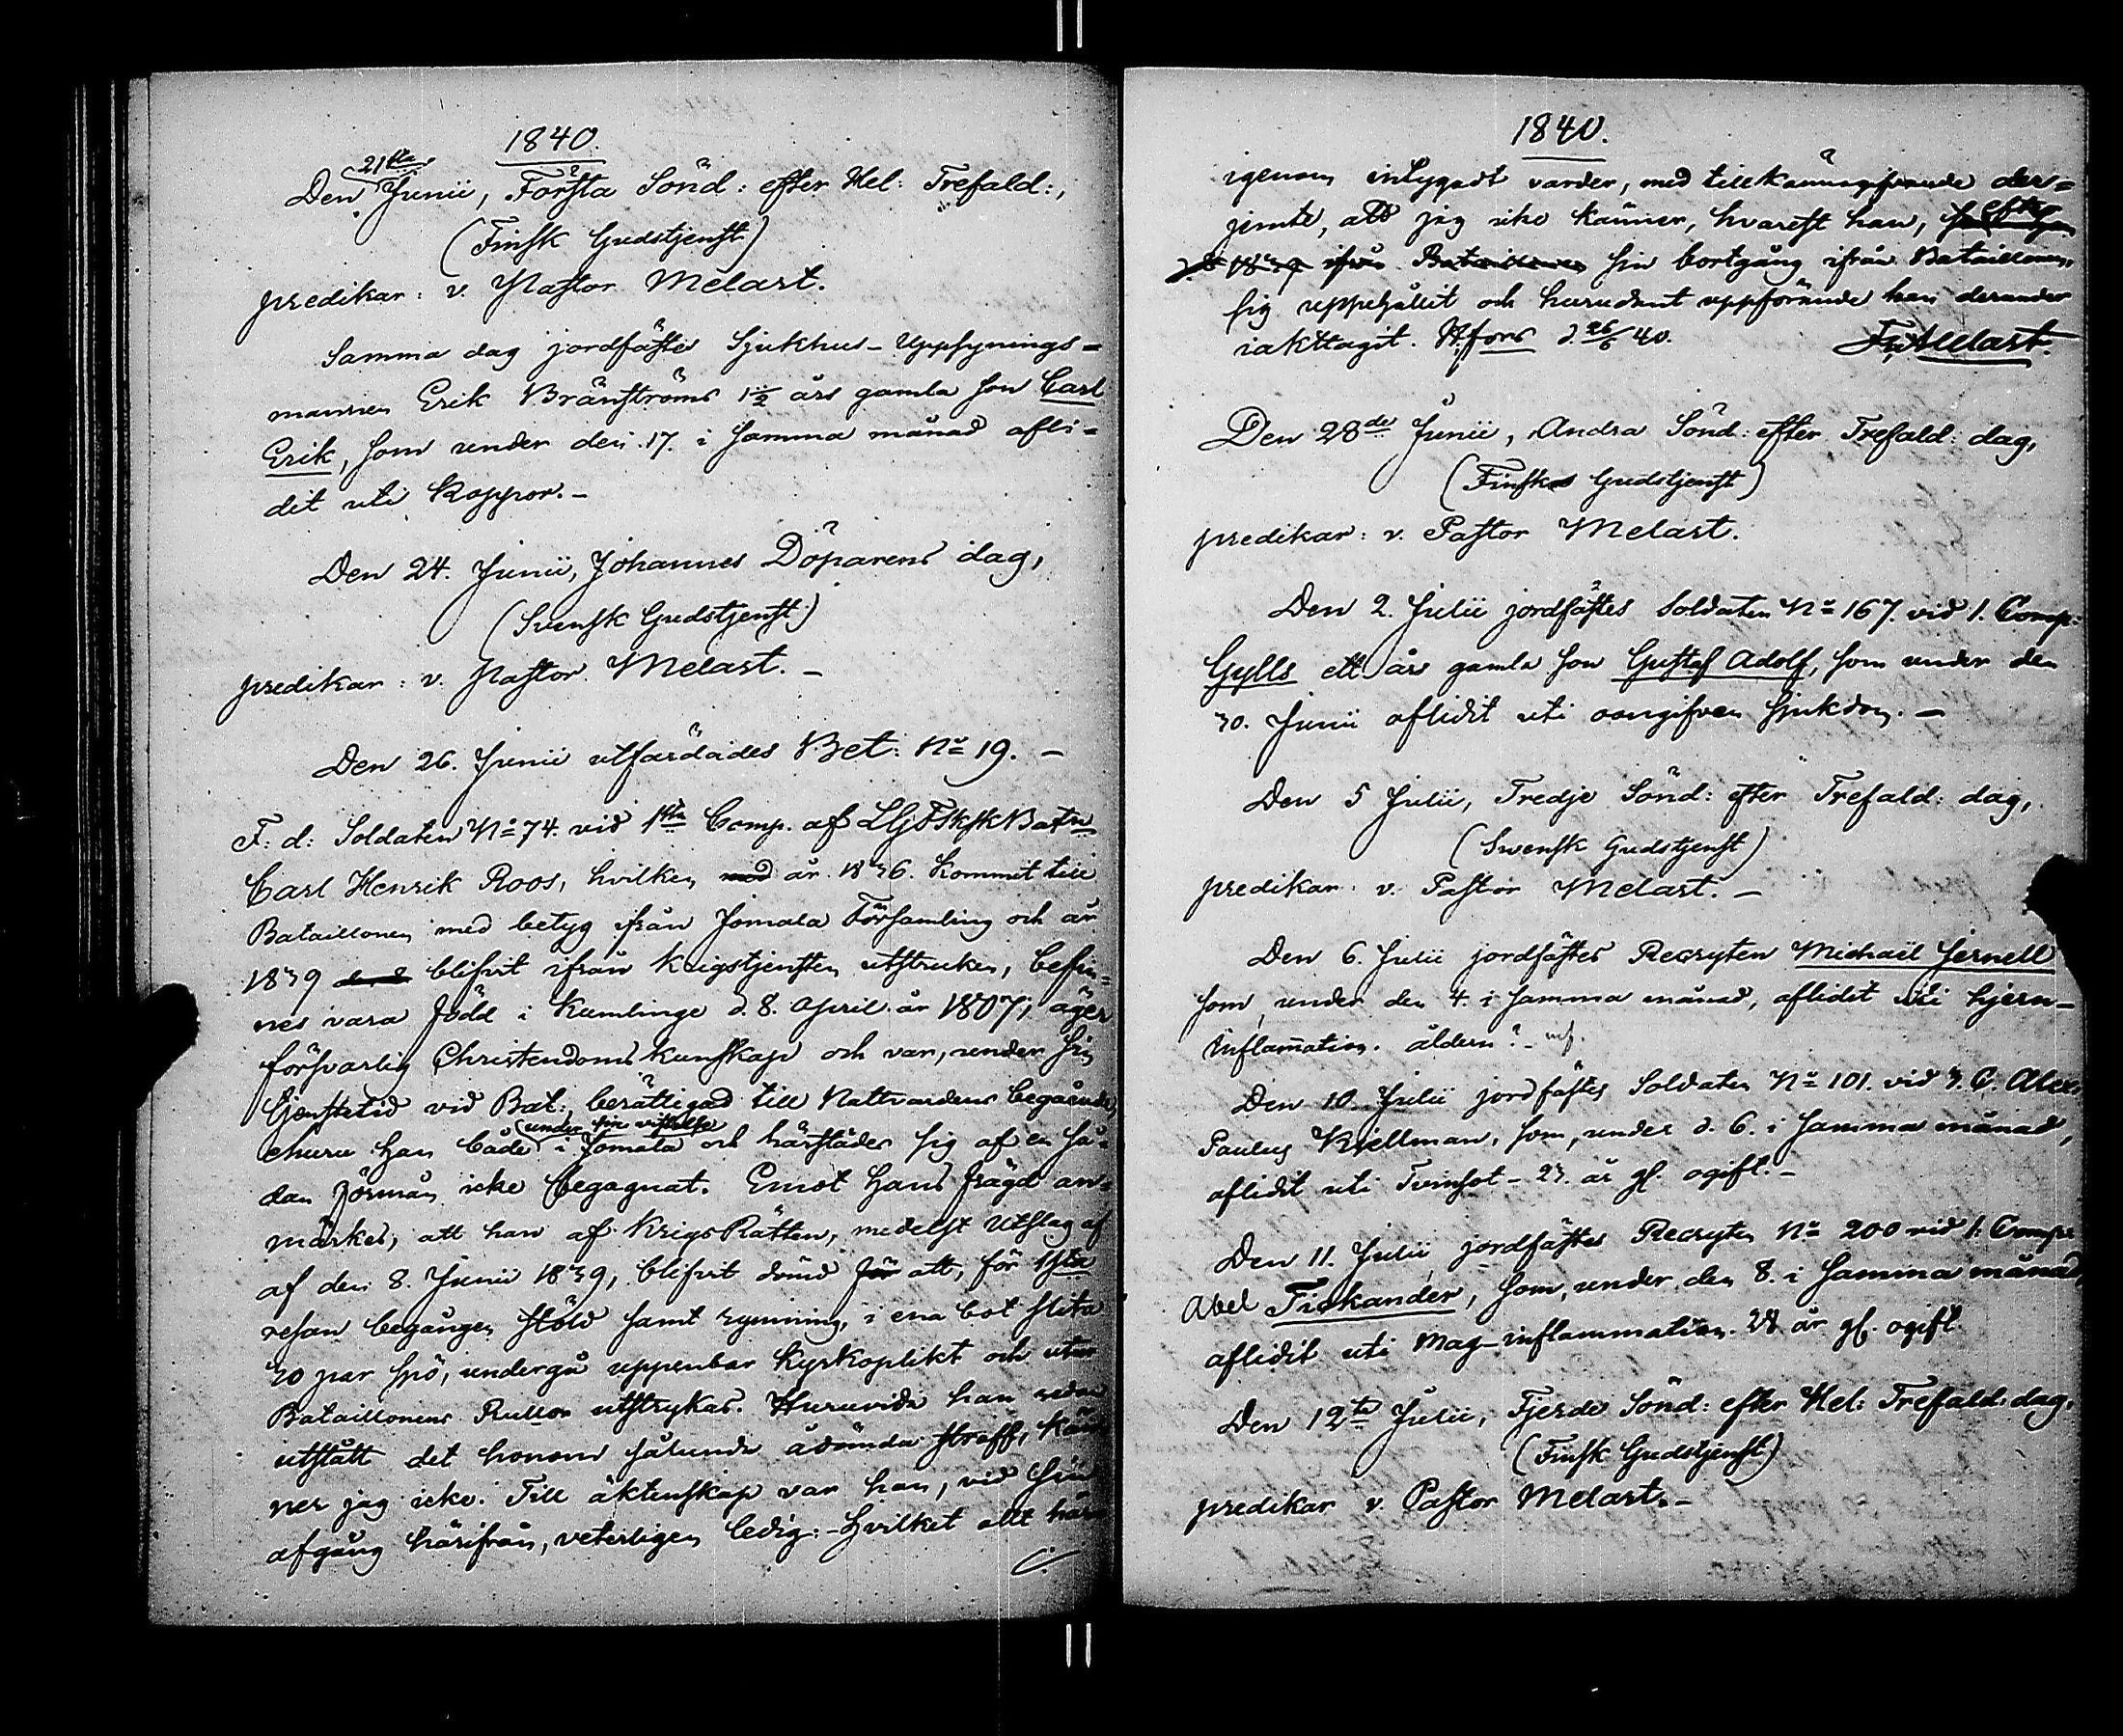 1840.
21sta
Den Junii, Första Sönd: efter Hel: Trefald:,
(Finsk Gudstjenst)
predikar: v. Pastor Melart.
Samma dag jordfästes Sjukhus-Uppsynings-
mannen Erik Bränströms 1 1/2 års gamla son Carl
Erik, som under den 17. i samma månad afli-
dit uti Koppor.-
Den 24. Junii, Johannes Döparens dag,
(Svensk Gudstjenst)
predikar: v. Pastor Melart.-
Den 26. Junii utfärdades Bet: No 19.-
F: d: Soldaten No 74. vid 1sta Comp. af LGFSkskBatn
Carl Henrik Roos, hvilken med år 1836. kommit till
Bataillonen med betyg ifrån Jomala Församling och år
1839 blifvit ifrån Krigstjensten utstruken, befin-
nes vara född i Kumlinge d. 8. April år 1807; äger
försvarlig Christendoms kunskap och var, under sin
tjenstetid vid Bat:, berättigad till Nattvardens begående,
under sin vistelse
churu han både i Jomala och härstädes sig af en så-
dan förmån icke begagnat. Emot hans frägd an-
märkes, att han af KrigsRätten, medelst Utslag af
af den 8. Junii 1839, blifvit dömd för att, för 1sta
resan begången stöld samt rymning, i ena bot slita
20 par spö, undergå uppenbar Kyrkoplikt och utur
Bataillonens Rullor utstrykas. Huruvida han redan
utstått det honom sålunda ådömda straff, kän-
ner jag icke. Till äktenskap var han, vid sin
afgång härifrån, veterligen ledig:- Hvilket allt här-
./.
1840.
igenom intygadt varder, med tillkännagifvande der-
jemte, att jag icke känner, hvarest han, efter
1839 ifrån Bataillonen sin bortgång ifrån Bataillonen,
sig uppehållit och hurudant uppförande han derunder
iakttagit. Hfors d. 26/6 40. Melart.
Den 28de Junii, Andra Sönd: efter Trefald: dag,
(Finsk Gudstjenst)
predikar: v. Pastor Melart.
Den 2. Julii jordfästes Soldaten No 167. vid 1. Comp:
Gylls ett års gamla son Gustaf Adolf, som under den
30. Junii aflidit uti oangifven sjukdom.-
Den 5 Julii, Tredje Sönd: efter Trefald: dag,
(Swensk Gudstjenst)
predikar: v. Pastor Melart.-
Den 6. Julii jordfästes Recryten Michaël Jernell
som, under den 4. i samma månad, aflidit uti hjern-
Inflammation. åldern?-
Den 10. Julii jordfästes Soldaten No 101. vid 3. C. Alex:
Paulus Kjellman, som, under d. 6. i samma månad,
aflidit uti Tvinsot - 23. år gl. ogift.-
Den 11. Julii jordfästes Recryten No 200 vid 1. Comp:
Abel Tickander, som, under den 8. i samma månad,
aflidit uti Mag-inflammation. 28 år gl. ogift.
Den 12te Julii, Fjerde Sönd: efter Hel: Trefald: dag,
(Finsk Gudstjenst)
predikar v. Pastor Melart.-